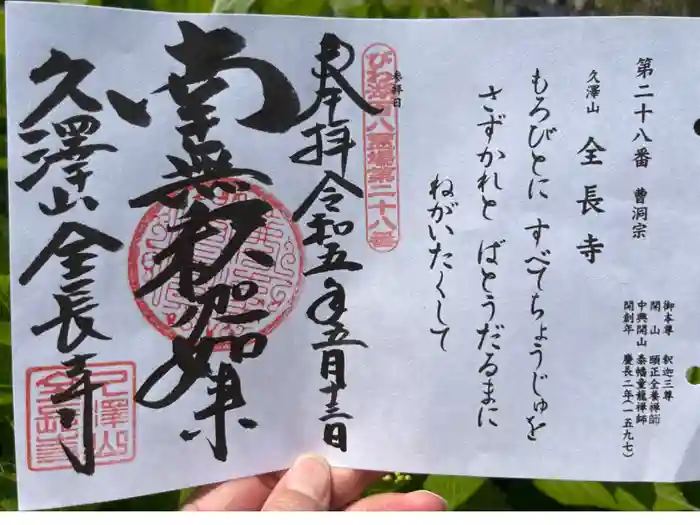 第二十八番 曹洞宗
久澤山 全長寺
御本尊 釈迦三尊
開山 頤正全養禅師
中興開山 泰幡童龍禅師
開創年 慶長二年(一五九七)
もろびとに すべてちょうじゅを
さずかれと ばとうだるまに
ねがいたくして
参拝日
びわ湖百八霊場第二十八番
奉拝 令和五年五月十三日
南無釈迦如来
久澤山 全長寺
久澤山
全長寺